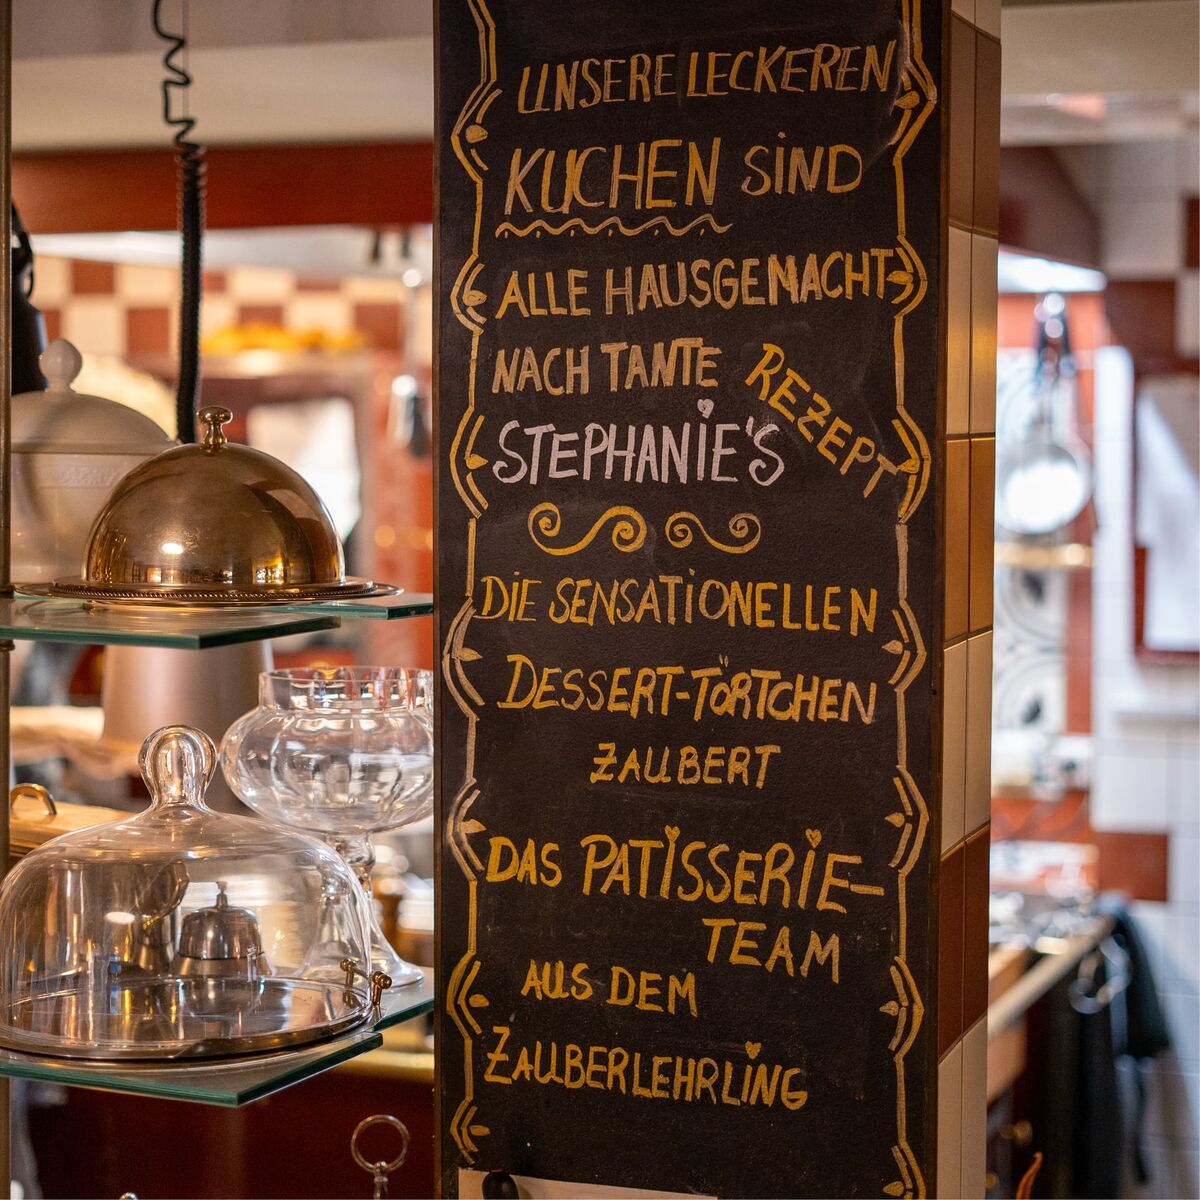 UNSERE LECKEREN
KUCHEN SIND
ALLE HAUSGEMACHT
NACH TANTE
STEPHANIE'S
REZEPT
DIE SENSATIONELLEN
DESSERT-TÖRTCHEN
ZAUBERT
DAS PATISSERIE-
TEAM
AUS DEM
ZAUBERLEHRLING